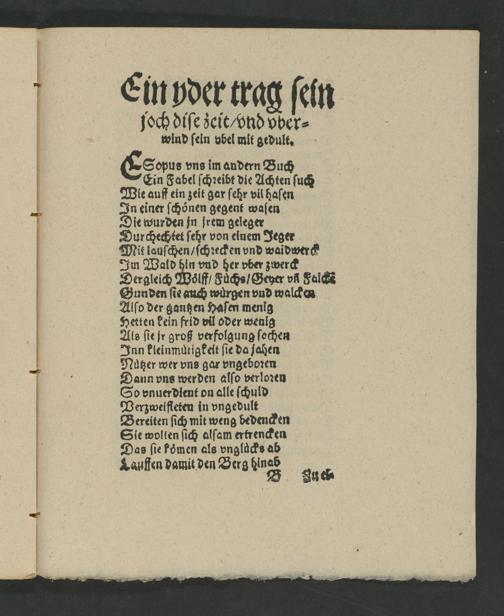 Ein yder trag sein
joch dise zeit/vnd vber-
wind sein vbel mit gedult.
ESopus vns im andern Buch
Ein Fabel schreibt die Achten such
Wie auff ein zeit gar sehr vil hasen
In einer schönen gegent wasen
Die wurden jn jrem geleger
Durchechtet sehr von einem Jeger
Mit lauschen/schrecken vnd waidwerck
Im Wald hin vnd her vber zwerck
Dergleich Wölff/Füchs/Geyer vñ Falckē
Gunden sie auch würgen vnd walcken
Also der gantzen Hasen menig
Hetten kein frid vil oder wenig
Als sie jr groß verfolgung sochen
Inn kleinmütigkeit sie da jahen
Nützer wer vns gar vngeboren
Dann vns werden also verloren
So vnuerdient on alle schuld
Verzweifleten in vngedult
Bereiten sich mit weng bedencken
Sie wolten sich alsam ertrencken
Das sie kömen als vnglücks ab
Lauffen damit den Berg hinab
B Zu ei-